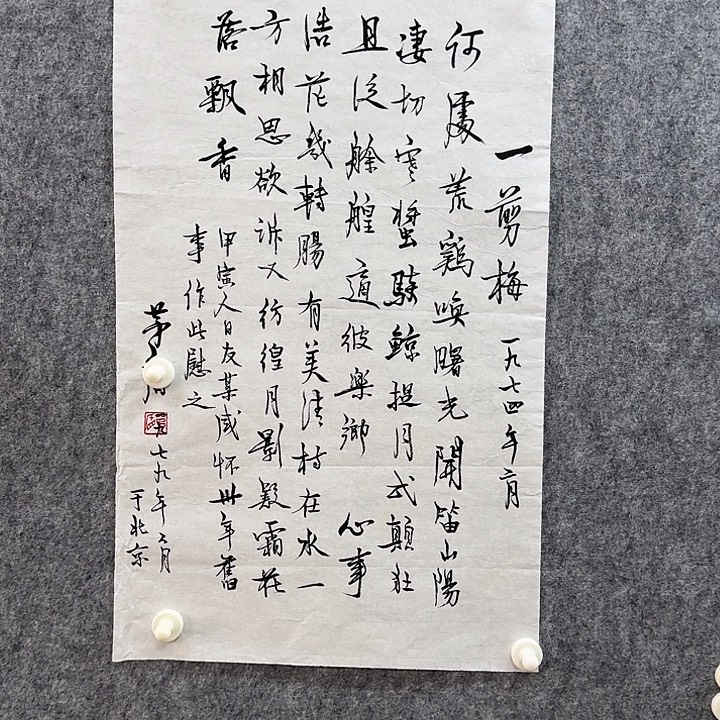 一剪梅 一九七四年二月
何處荒鷄唤曙光聞笛山陽
凄切寒螿騎鯨捉月忒顛狂
且泛艅艎適彼樂鄉 心事
浩茫幾轉腸有美清揚在水一
方相思欲訴又彷徨月影疑霜花
落飄香
甲寅人日友某感怀卅年舊
事作此慰之
茅
一九七九年二月
于北京